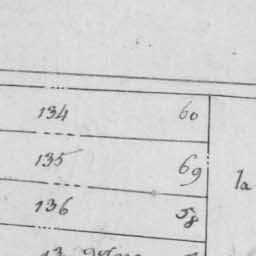 134 60
135 69
1a
136 58